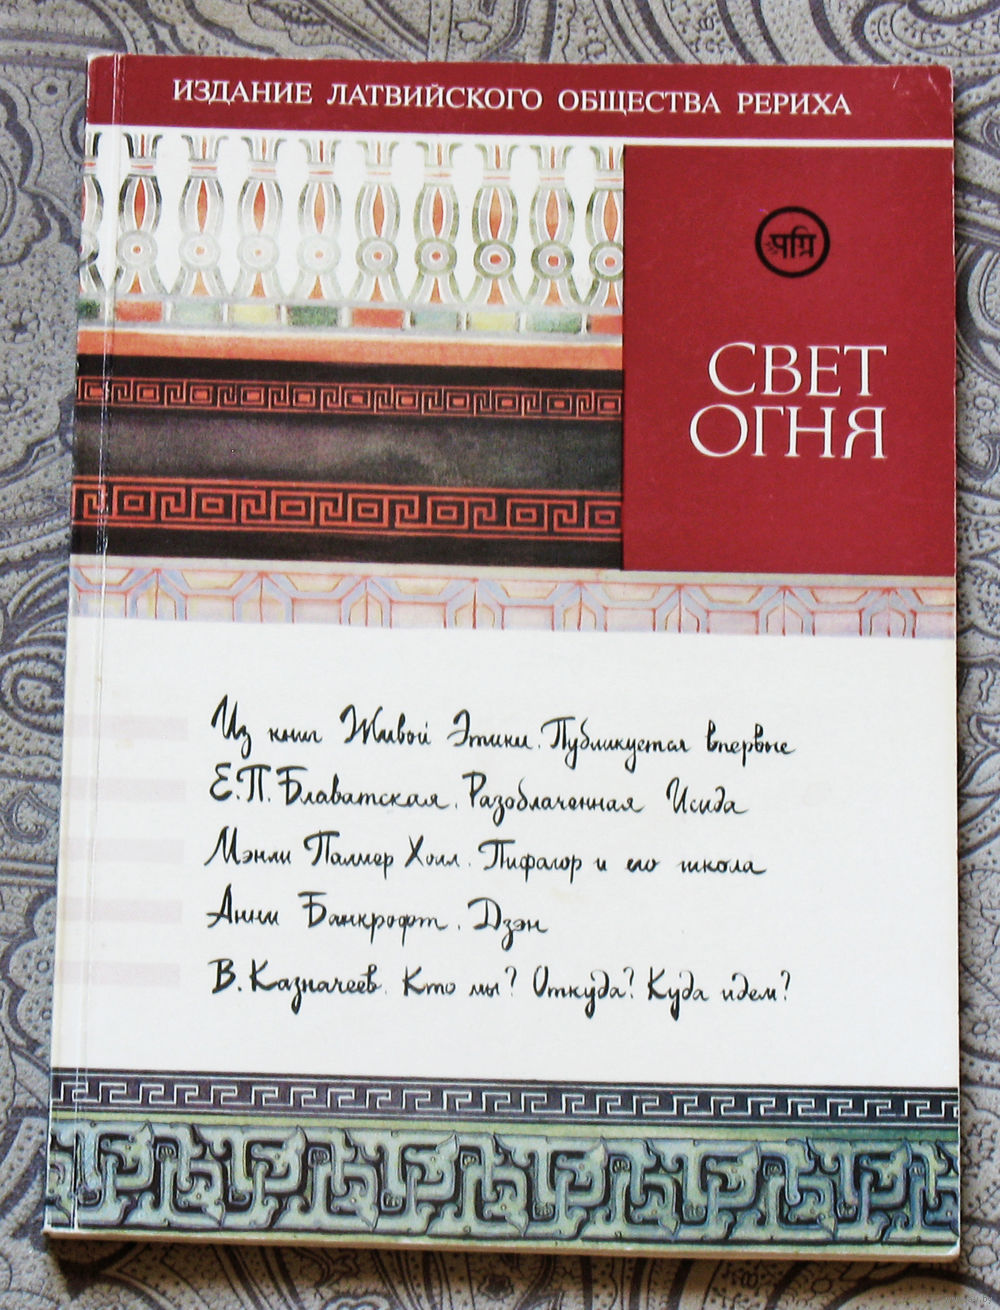 ИЗДАНИЕ ЛАТВИЙСКОГО ОБЩЕСТВА РЕРИХА
СВЕТ
ОГНЯ
Из книг Живой Этики. Публикуется впервые
Е.П.Блаватская. Разоблаченная Исида
Мэнли Палмер Холл. Пифагор и его школа
Энни Банкрофт. Дзэн
В.Казначеев. Кто мы? Откуда? Куда идем?